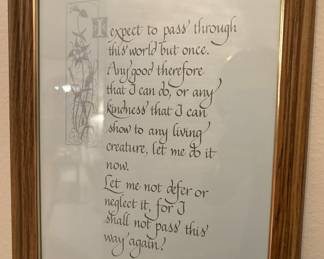 I expect to pass through
this world but once.
Any good therefore
that I can do, or any
kindness that I can
show to any living
creature, let me do it
now.
Let me not defer or
neglect it, for I
shall not pass this
way again!